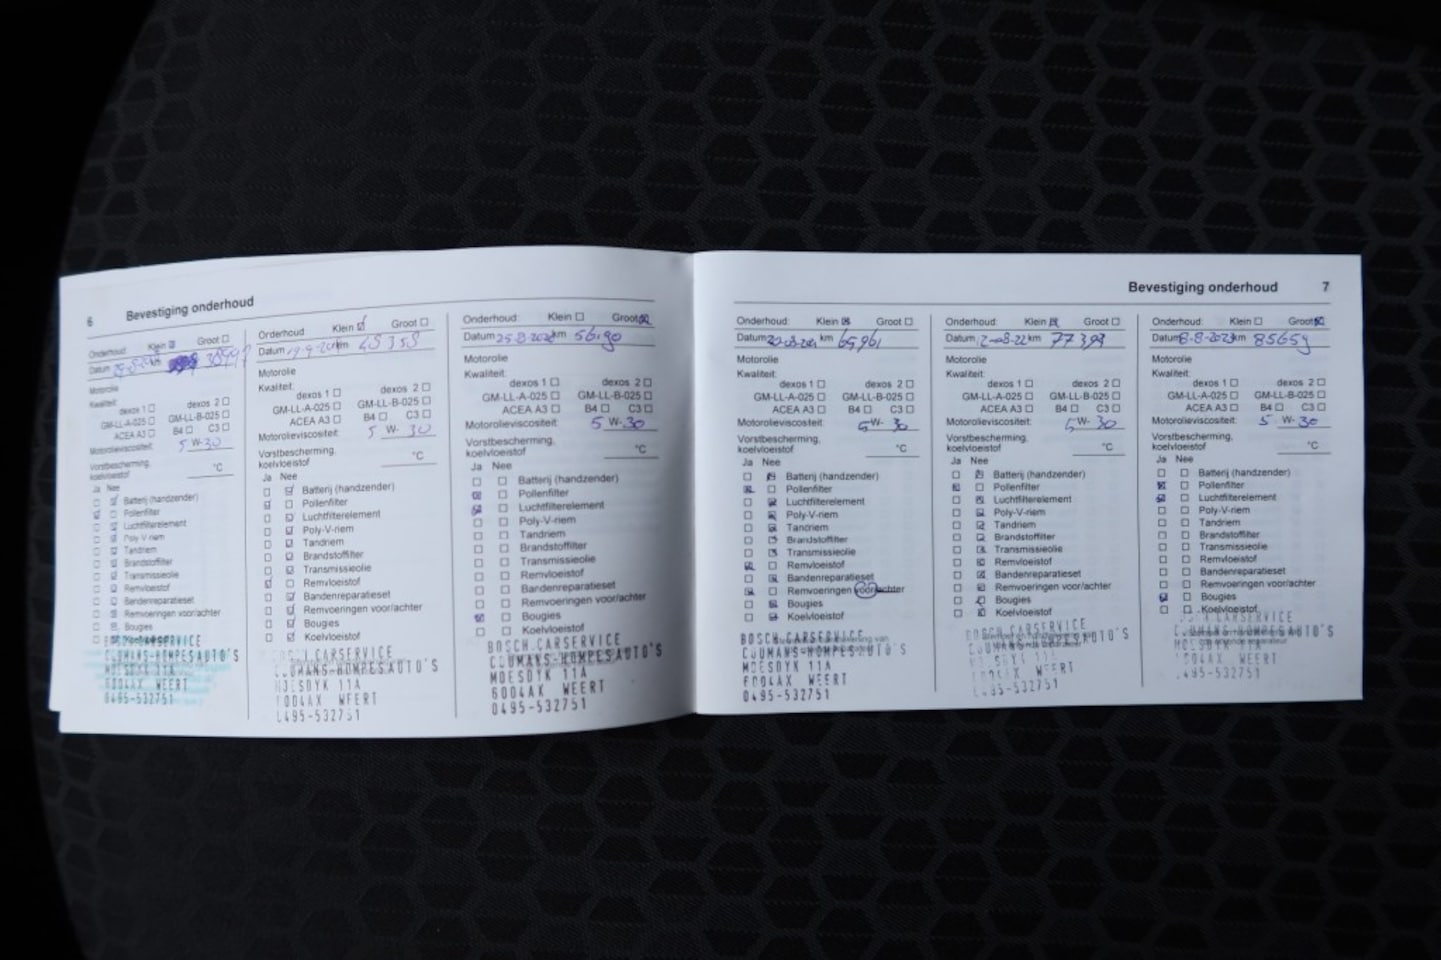 6 Bevestiging onderhoud
Onderhoud: Klein Groot
Datum km
Motorolie
Kwaliteit:
dexos 1 dexos 2
GM-LL-A-025 GM-LL-B-025
ACEA A3 B4 C3
Motorolieviscositeit: 5 W- 30
Vorstbescherming,
koelvloeistof °C
Ja Nee
Batterij (handzender)
Pollenfilter
Luchtfilterelement
Poly-V-riem
Tandriem
Brandstoffilter
Transmissieolie
Remvloeistof
Bandenreparatieset
Remvoeringen voor/achter
Bougies
Koelvloeistof
BOSCH CARSERVICE
COUMANS-HOMPESAUTO'S
MOESDYK 11A
6004AX WEERT
0495-532751
Onderhoud: Klein Groot
Datum 45358
Motorolie
Kwaliteit:
dexos 1 dexos 2
GM-LL-A-025 GM-LL-B-025
ACEA A3 B4 C3
Motorolieviscositeit: 5 W- 30
Vorstbescherming,
koelvloeistof °C
Ja Nee
Batterij (handzender)
Pollenfilter
Luchtfilterelement
Poly-V-riem
Tandriem
Brandstoffilter
Transmissieolie
Remvloeistof
Bandenreparatieset
Remvoeringen voor/achter
Bougies
Koelvloeistof
CARSERVICE
COUMANS-HOMPESAUTO'S
MOESDYK 11A
6004AX WEERT
0495-532751
Onderhoud: Klein Groot
Datum km
Motorolie
Kwaliteit:
dexos 1 dexos 2
GM-LL-A-025 GM-LL-B-025
ACEA A3 B4 C3
Motorolieviscositeit: 5 W- 30
Vorstbescherming,
koelvloeistof °C
Ja Nee
Batterij (handzender)
Pollenfilter
Luchtfilterelement
Poly-V-riem
Tandriem
Brandstoffilter
Transmissieolie
Remvloeistof
Bandenreparatieset
Remvoeringen voor/achter
Bougies
Koelvloeistof
BOSCH CARSERVICE
COUMANS-HOMPESAUTO'S
MOESDYK 11A
6004AX WEERT
0495-532751
Bevestiging onderhoud 7
Onderhoud: Klein Groot
Datum km 65961
Motorolie
Kwaliteit:
dexos 1 dexos 2
GM-LL-A-025 GM-LL-B-025
ACEA A3 B4 C3
Motorolieviscositeit: 5 W- 30
Vorstbescherming,
koelvloeistof °C
Ja Nee
Batterij (handzender)
Pollenfilter
Luchtfilterelement
Poly-V-riem
Tandriem
Brandstoffilter
Transmissieolie
Remvloeistof
Bandenreparatieset
Remvoeringen voor/achter
Bougies
Koelvloeistof
BOSCH CARSERVICE
COUMANS-HOMPESAUTO'S
MOESDYK 11A
6004AX WEERT
0495-532751
Onderhoud: Klein Groot
Datum 2-08-22 km
Motorolie
Kwaliteit:
dexos 1 dexos 2
GM-LL-A-025 GM-LL-B-025
ACEA A3 B4 C3
Motorolieviscositeit: 5 W- 30
Vorstbescherming,
koelvloeistof °C
Ja Nee
Batterij (handzender)
Pollenfilter
Luchtfilterelement
Poly-V-riem
Tandriem
Brandstoffilter
Transmissieolie
Remvloeistof
Bandenreparatieset
Remvoeringen voor/achter
Bougies
Koelvloeistof
Onderhoud: Klein Groot
Datum 8-8-2023 km 85659
Motorolie
Kwaliteit:
dexos 1 dexos 2
GM-LL-A-025 GM-LL-B-025
ACEA A3 B4 C3
Motorolieviscositeit: 5 W- 30
Vorstbescherming,
koelvloeistof °C
Ja Nee
Batterij (handzender)
Pollenfilter
Luchtfilterelement
Poly-V-riem
Tandriem
Brandstoffilter
Transmissieolie
Remvloeistof
Bandenreparatieset
Remvoeringen voor/achter
Bougies
Koelvloeistof